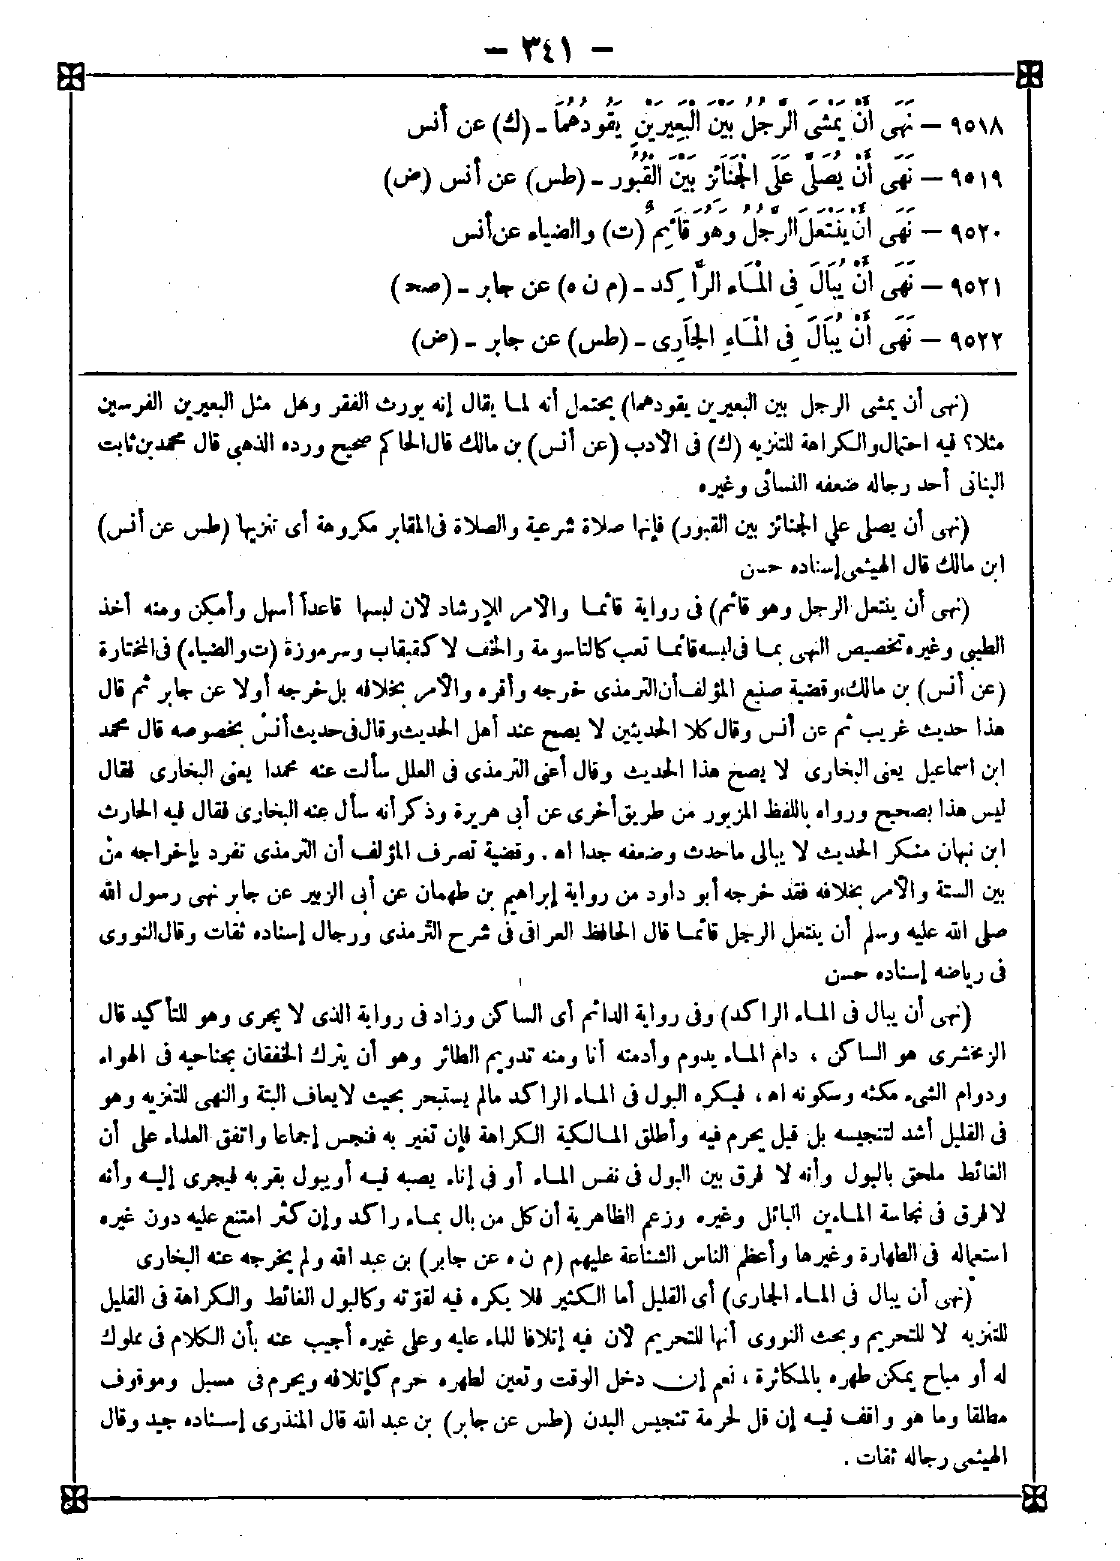 — ٣٤١ —
٩٥١٨ — نَهَى أَنْ يَمْشِىَ الرَّجُلُ بَيْنَ الْبَعِيرَيْنِ يَقُودُهُمَا ـ (ك) عن أنس
٩٥١٩ — نَهَى أَنْ يُصَلَّى عَلَى الْجَنَائِزِ بَيْنَ الْقُبُورِ ـ (طس) عن أنس (ض)
٩٥٢٠ — نَهَى أَنْ يَنْتَعِلَ الرَّجُلُ وَهُوَ قَائِمٌ (ت) والضياء عن أنس
٩٥٢١ — نَهَى أَنْ يُبَالَ فِى الْمَاءِ الرَّاكِدِ ـ (م ن ه) عن جابر ـ (صح)
٩٥٢٢ — نَهَى أَنْ يُبَالَ فِى الْمَاءِ الْجَارِى ـ (طس) عن جابر ـ (ض)
(نهى أن يمشى الرجل بين البعيرين يقودهما) يحتمل أنه لما يقال إنه يورث الفقر وهل مثل البعيرين الفرسين
مثلا؟ فيه احتمال والكراهة للتنزيه (ك) فى الأدب (عن أنس) بن مالك قال الحاكم صحيح ورده الذهبى قال محمد بن ثابت
البنانى أحد رجاله ضعفه النسائى وغيره
(نهى أن يصلى على الجنائز بين القبور) فإنها صلاة شرعية والصلاة فى المقابر مكروهة أى تنزيها (طس عن أنس)
ابن مالك قال الهيثمى إسناده حسن
(نهى أن ينتعل الرجل وهو قائم) فى رواية قائما والأمر للإرشاد لأن لبسها قاعداً أسهل وأمكن ومنه أخذ
الطيبى وغيره تخصيص النهى بما فى لبسه قائما تعب كالتاسومة والخف لا كقبقاب وسرموزة (ت والضياء) فى المختارة
(عن أنس) بن مالك، وقضية صنيع المؤلف أن الترمذى خرجه وأقره والأمر بخلافه بل خرجه أولا عن جابر ثم قال
هذا حديث غريب ثم عن أنس وقال كلا الحديثين لا يصح عند أهل الحديث وقال فى حديث أنس بخصوصه قال محمد
ابن اسماعيل يعنى البخارى لا يصح هذا الحديث وقال أعنى الترمذى فى العلل سألت عنه محمدا يعنى البخارى فقال
ليس هذا بصحيح ورواه باللفظ المزبور من طريق أخرى عن أبى هريرة وذكر أنه سأل عنه البخارى فقال فيه الحارث
ابن نبهان منكر الحديث لا يبالى ماحدث وضعفه جدا اه . وقضية تصرف المؤلف أن الترمذى تفرد بإخراجه من
بين الستة والأمر بخلافه فقد خرجه أبو داود من رواية إبراهيم بن طهمان عن أبى الزبير عن جابر نهى رسول الله
صلى الله عليه وسلم أن ينتعل الرجل قائما قال الحافظ العراقى فى شرح الترمذى ورجال إسناده ثقات وقال النووى
فى رياضه إسناده حسن
(نهى أن يبال فى الماء الراكد) وفى رواية الدائم أى الساكن وزاد فى رواية الذى لا يجرى وهو للتأكيد قال
الزمخشرى هو الساكن ، دام الماء يدوم وأدمته أنا ومنه تدويم الطائر وهو أن يترك الخفقان بجناحيه فى الهواء
ودوام الشىء مكثه وسكونه اه ، فيكره البول فى الماء الراكد مالم يستبحر بحيث لا يعاف البتة والنهى للتنزيه وهو
فى القليل أشد لتنجيسه بل قيل يحرم فيه وأطلق المالكية الكراهة فإن تغير به فنجس إجماعا واتفق العلماء على أن
الغائط ملحق بالبول وأنه لا فرق بين البول فى نفس الماء أو فى إناء يصبه فيه أو يبول بقربه فيجرى إليه وأنه
لا فرق فى نجاسة الماء بين البائل وغيره وزعم الظاهرية أن كل من بال بماء راكد وإن كثر امتنع عليه دون غيره
استعماله فى الطهارة وغيرها وأعظم الناس الشناعة عليهم (م ن ه عن جابر) بن عبد الله ولم يخرجه عنه البخارى
(نهى أن يبال فى الماء الجارى) أى القليل أما الكثير فلا يكره فيه لقوّته وكالبول الغائط والكراهة فى القليل
للتنزيه لا للتحريم وبحث النووى أنها للتحريم لأن فيه إتلافا للماء عليه وعلى غيره أجيب عنه بأن الكلام فى مملوك
له أو مباح يمكن طهره بالمكاثرة ، نعم إن دخل الوقت وتعين لطهره حرم كإتلافه ويحرم فى مسبل وموقوف
مطلقا وما هو واقف فيه إن قل لحرمة تنجيس البدن (طس عن جابر) بن عبد الله قال المنذرى إسناده جيد وقال
الهيثمى رجاله ثقات .